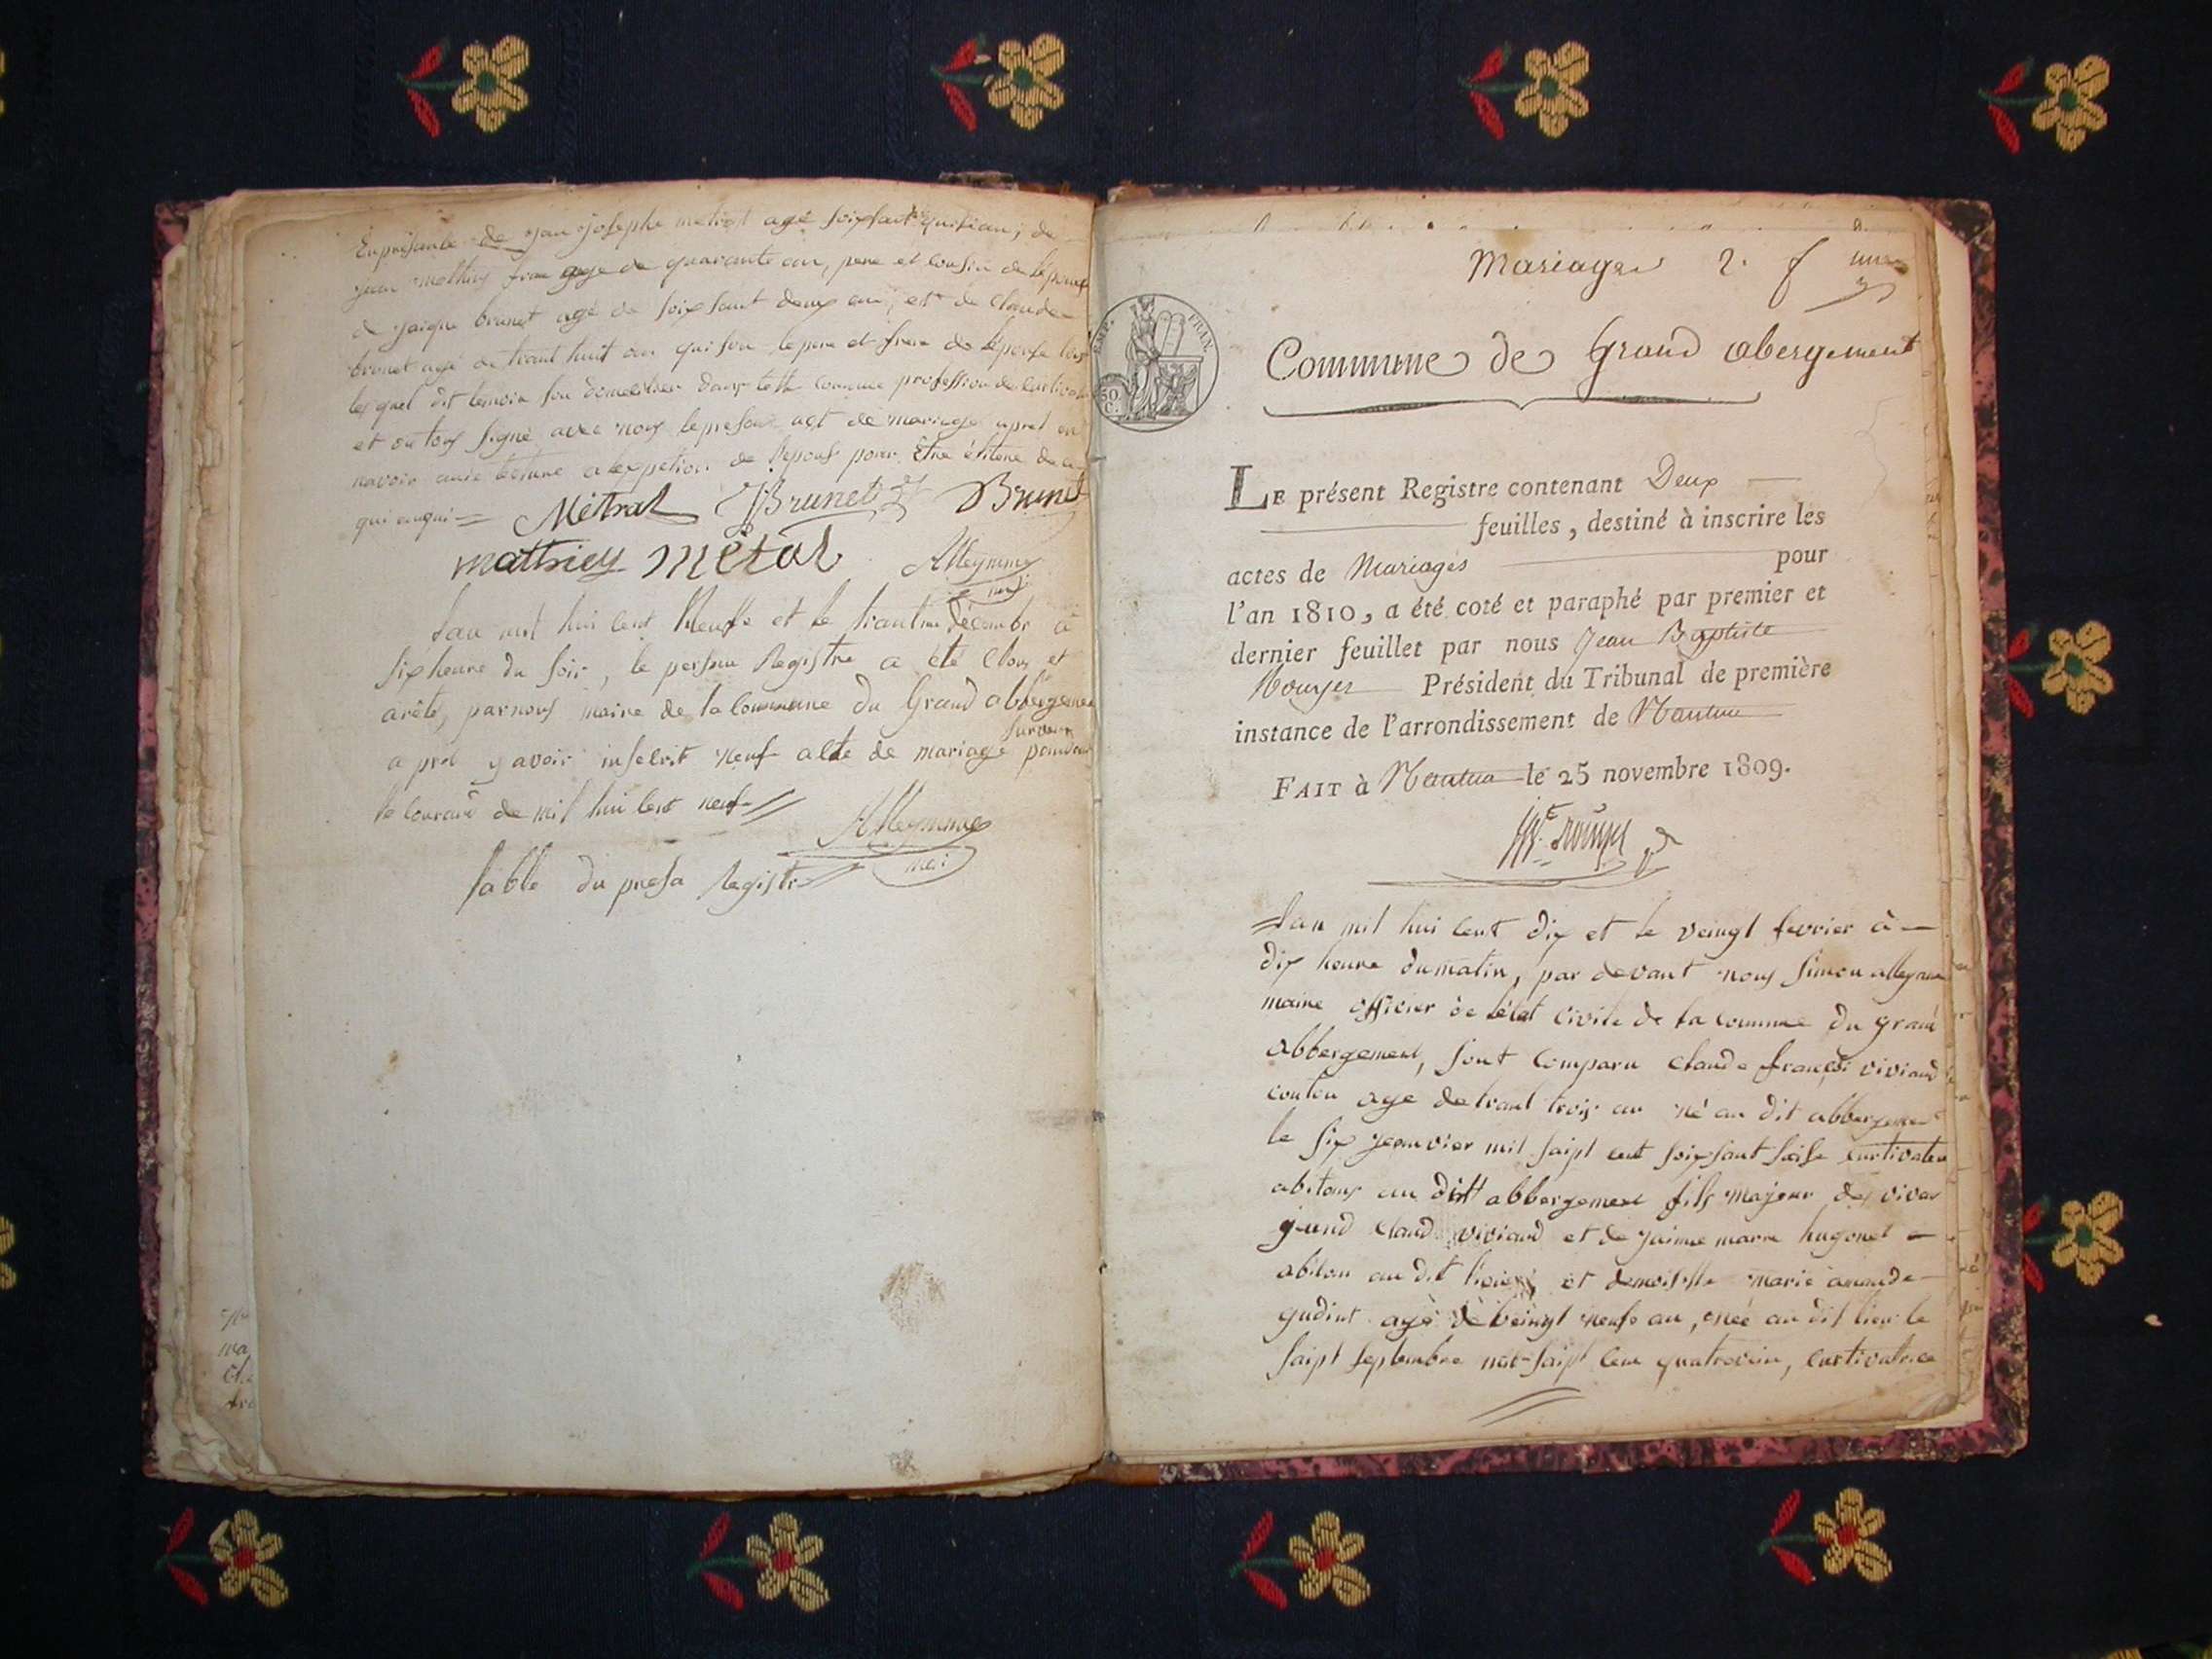 de jan josephe metral agé soixsant quinsian, de
jean mathieu frere age de quarante an, pere et cousin de l'epoux
de jaique brunet agé de soixsant deux an, et de claude
brunet agé de trant huit an qui son le pere et frere de l'epouse
les quel dit temoin son domicilier dans cette commune profession de cultivat
et on tous signé avec nous le presan act de mariage apret en
navoir auie lecture a lexpetion de l'epous pour
Métral JBrunet Brunet
mathieu métral Alleymne
lan mil hui cent Neuffe et le trantun décembr à
six heure du soir, le persan Registre a été clous et
arêté, par nous maire de la commune du Grand abbergemen
survenu
a pret y avoir inscrit neuf alte de mariage pendant
le courant de mil hui cent neuf
Alleymne
mai
table du presa Registre
Mariages 2. f une
EMP. FRAN.
50
C.
Commune de Grand abergement
LE présent Registre contenant Deux
feuilles, destiné à inscrire les
actes de Mariages pour
l'an 1810, a été coté et paraphé par premier et
dernier feuillet par nous Jean Baptiste
Rouyer Président du Tribunal de première
instance de l'arrondissement de Nantua
FAIT à Nantua le 25 novembre 1809.
Lan mil hui cent dix et le veingt fevrier à
dix heure dumatin, par devant nous Simon alleymne
maire officier de létat civile de la commune du grand
abbergement, sont comparu claude françoi viviand
age de trant trois an né au dit abbergement
le six jeanvier mil saipt cent soixsant saise curtivateu
abitans au ditt abbergement fils majeur des vivas
claud viviand et de jaime marie hugonet
abitan au dit lieu, et demoiselle marie
gudint agé de veingt neufe an, née au dit lieu le
saipt septembre mil saipt cen quatrevin, curtivatrice